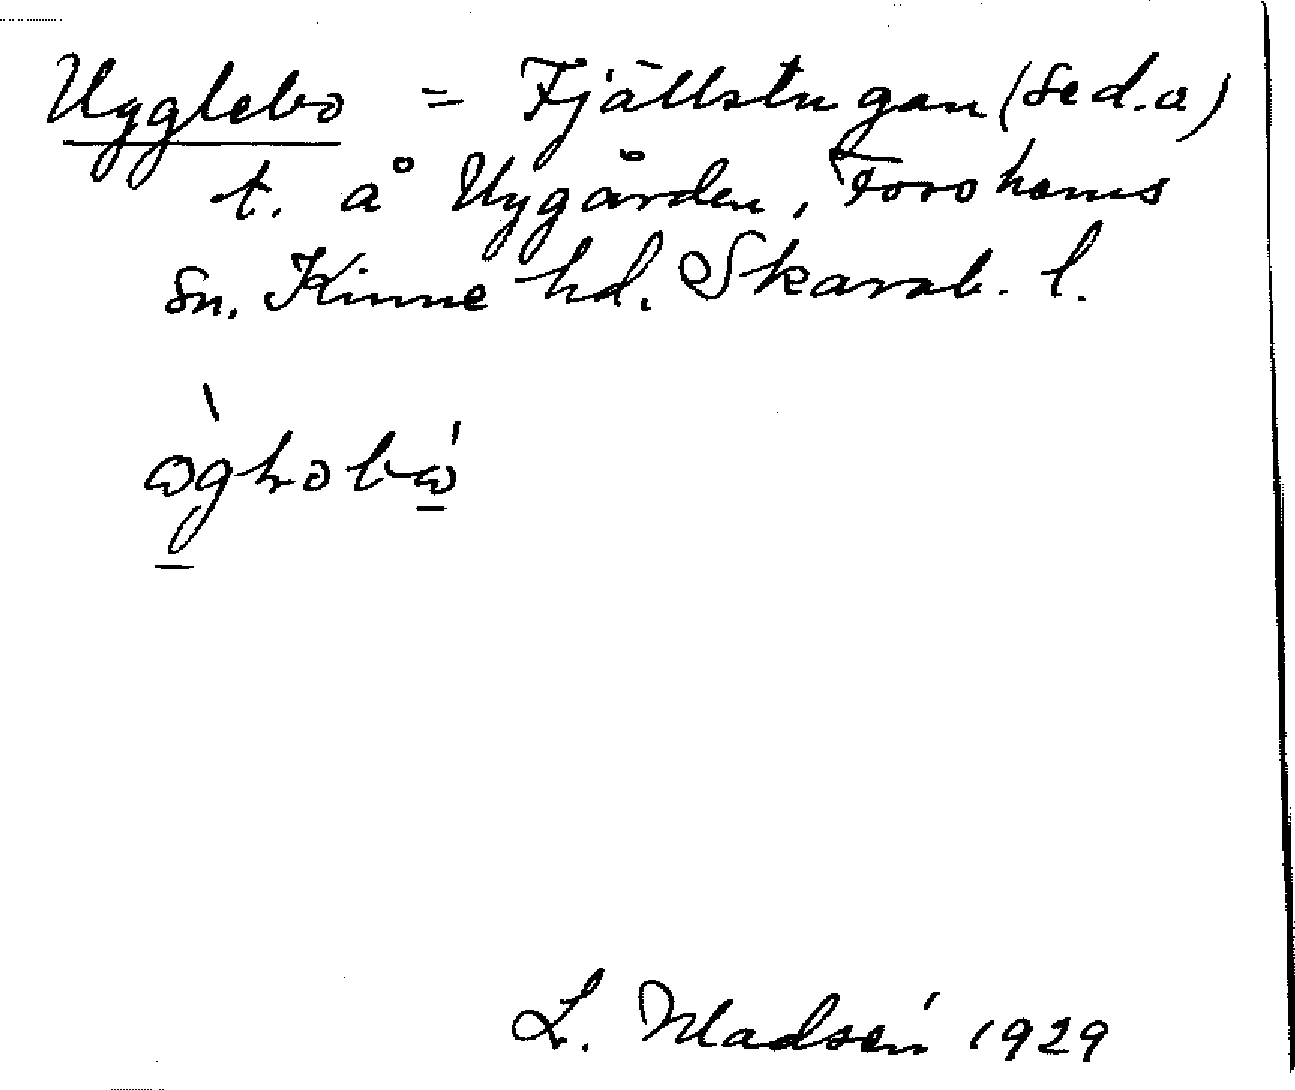 Ugglebo = Fjällstugan (se d.a)
t. å Nygården, Forshems
sn. Kinne hd. Skarab. l.
L. Madsén 1929